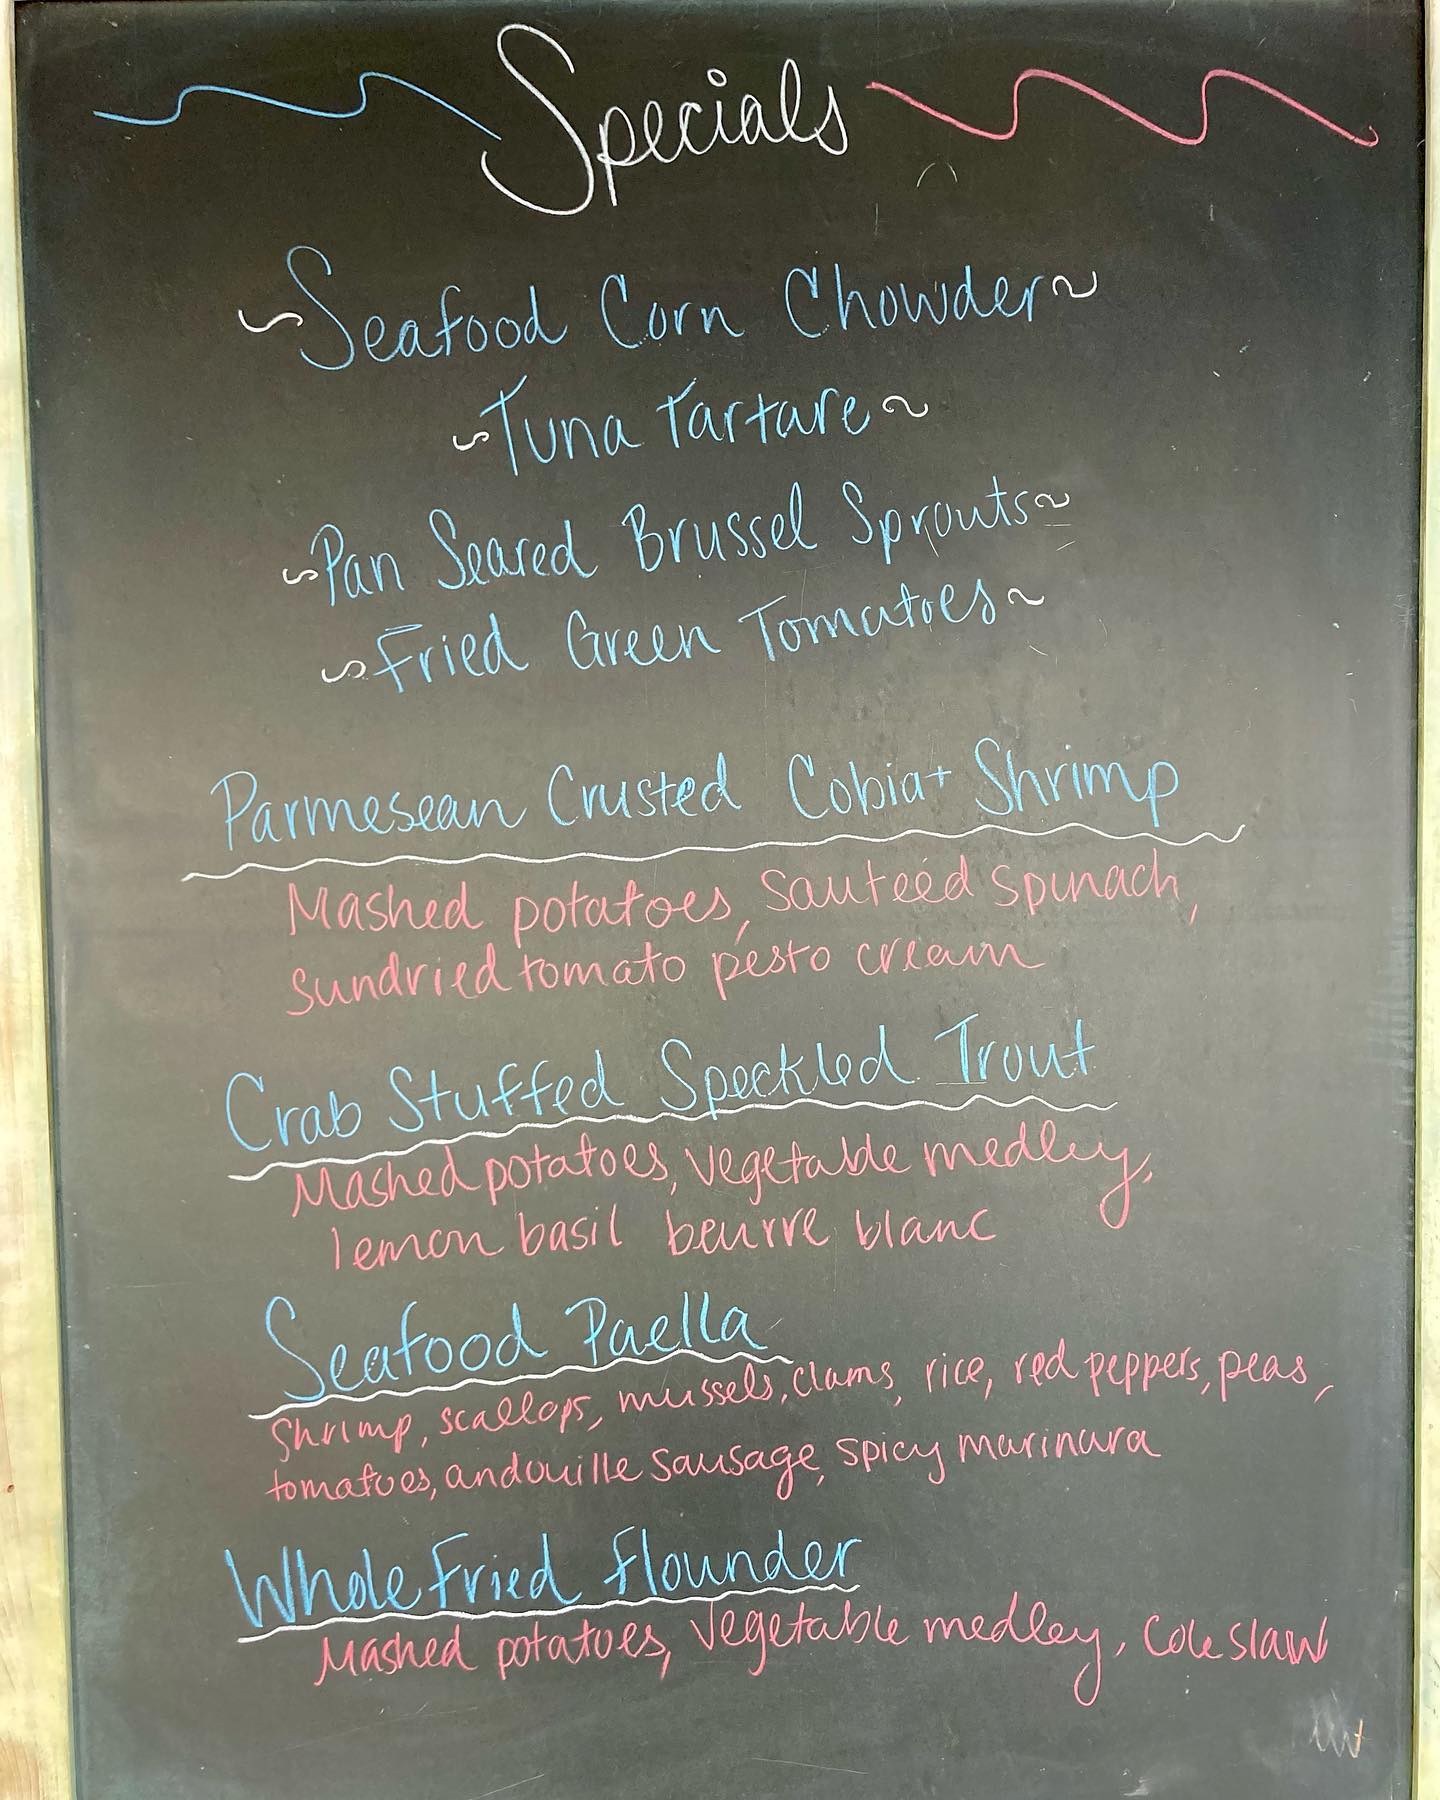 Specials
~Seafood Corn Chowder~
~Tuna Tartare~
~Pan Seared Brussel Sprouts~
~Fried Green Tomatoes~
Parmesean Crusted Cobia + Shrimp
Mashed potatoes, sauteéd spinach,
sundried tomato pesto cream
Crab Stuffed Speckled Trout
Mashed potatoes, vegetable medley,
lemon basil beurre blanc
Seafood Paella
Shrimp, scallops, mussels, clams, rice, red peppers, peas,
tomatoes, andouille sausage, spicy marinara
Whole Fried Flounder
Mashed potatoes, vegetable medley, Cole slaw